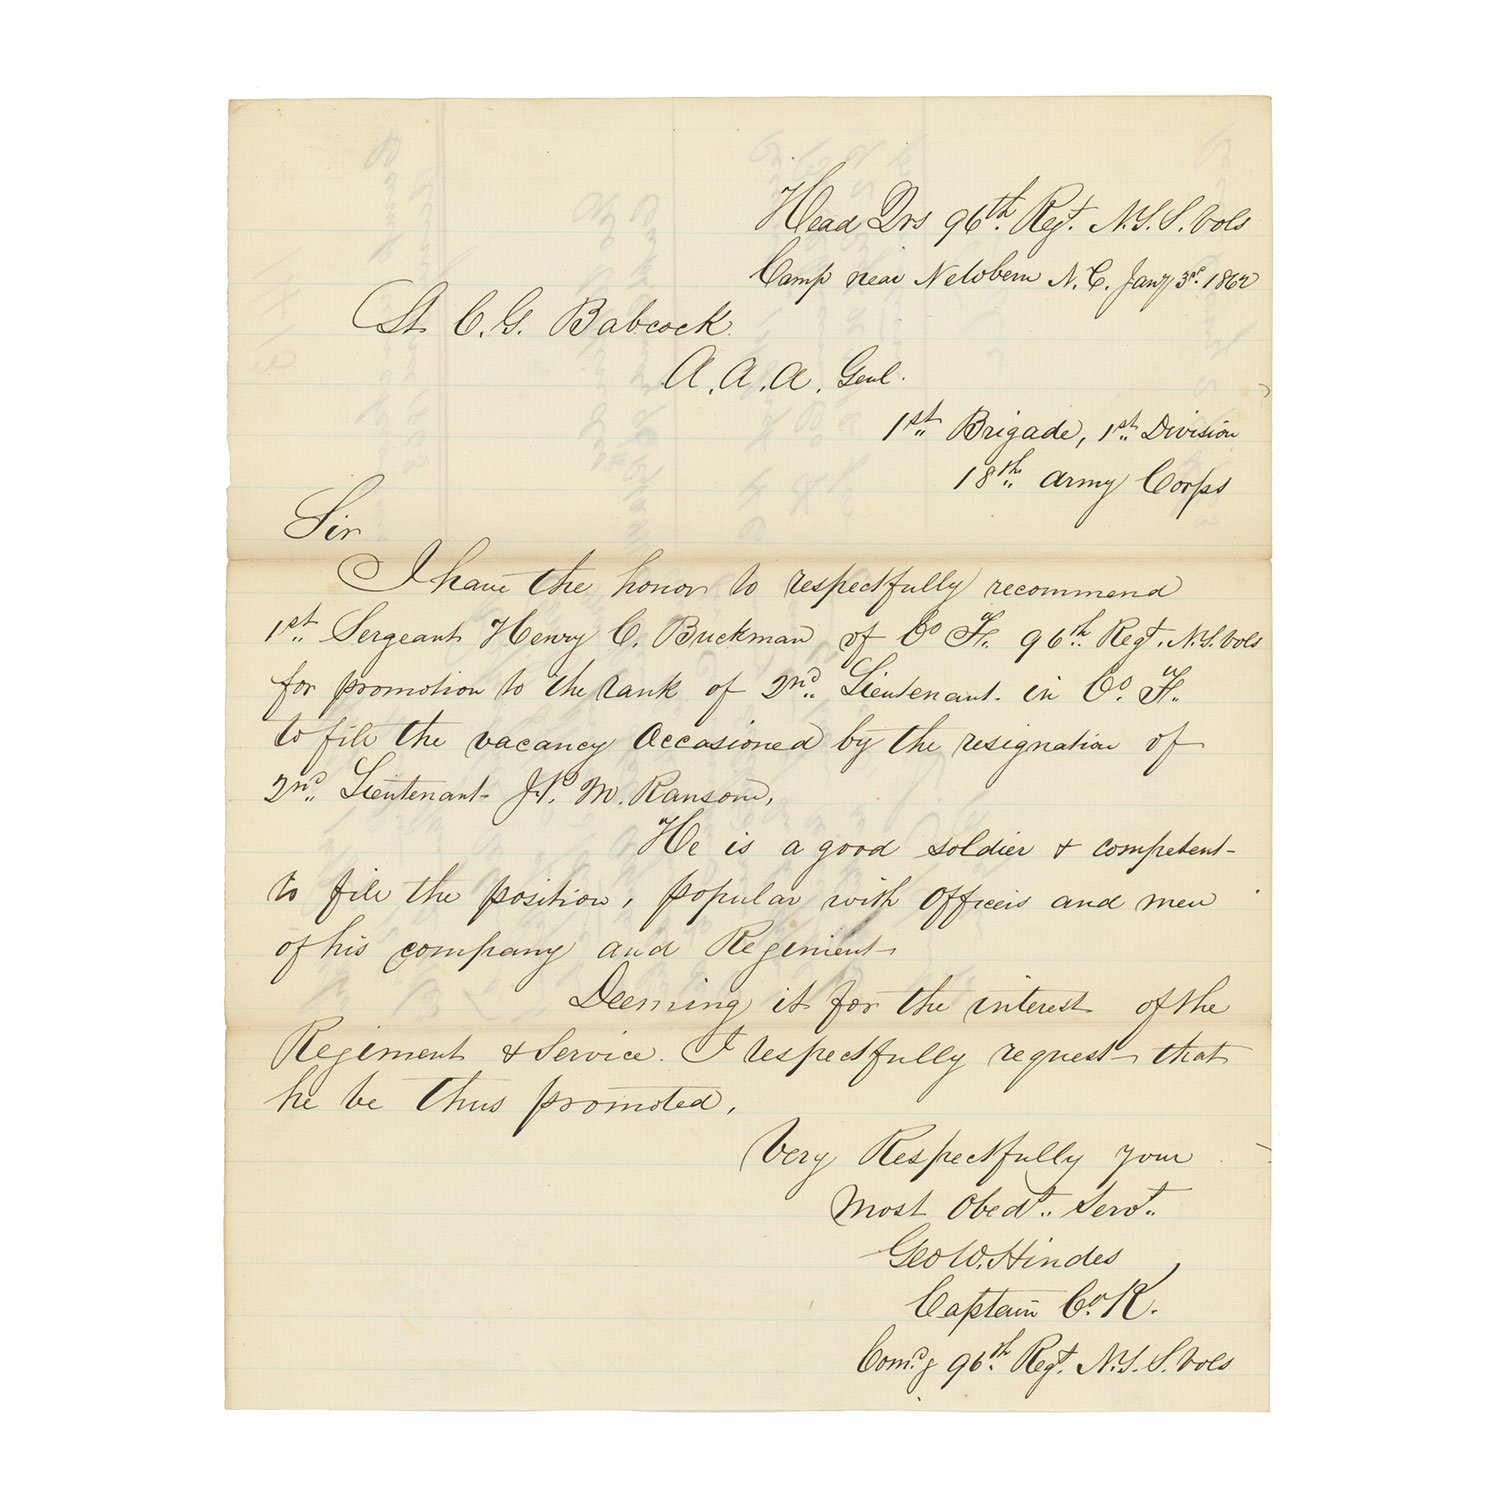 Head Qrs 96th Regt. N.Y.S. Vols
Camp near Newbern N.C. Jany 3rd. 1862
Lt C. G. Babcock
A. A. A. Genl.
1st Brigade, 1st Division
18th Army Corps
Sir
I have the honor to respectfully recommend
1st Sergeant Henry C. Buckman of Co F. 96th Regt. N.Y.S. Vols
for promotion to the rank of 2nd Lieutenant in Co. F.
to fill the vacancy Occasioned by the resignation of
2nd Lieutenant M. Ransom,
He is a good soldier & competent
to fill the position, popular with Officers and men
of his company and Regiment
Deeming it for the interest of the
Regiment & Service. I respectfully request that
he be thus promoted.
Very Respectfully your
Most Obedt. Servt.
Geo W. Hindes
Captain Co. K.
Comdg 96th Regt. N.Y.S. Vols